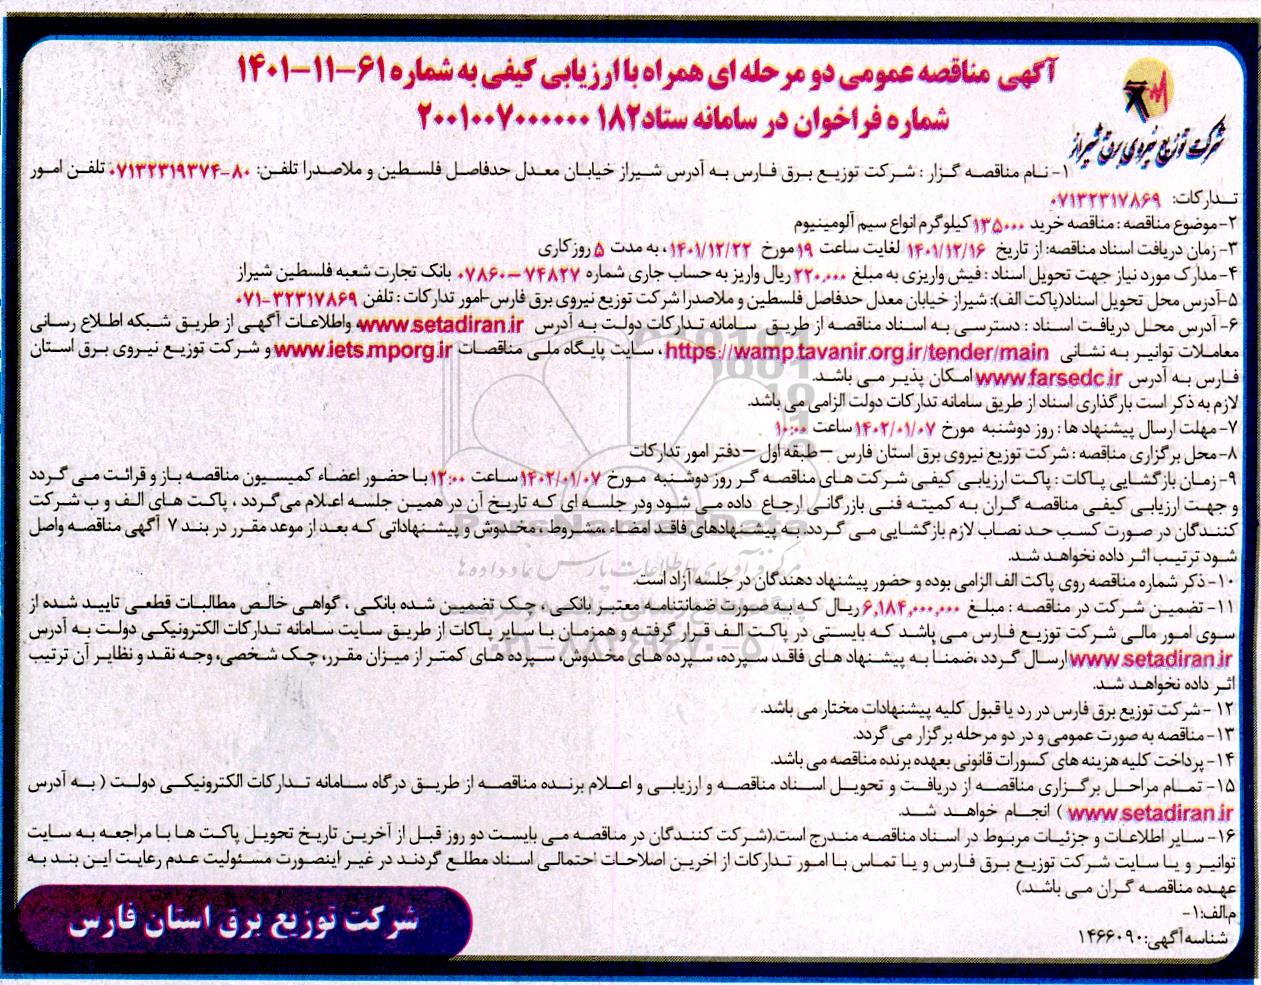 آگهی مناقصه عمومی دو مرحله ای همراه با ارزیابی کیفی به شماره ۶۱-۱۱-۱۴۰۱
شماره فراخوان در سامانه ستاد ۲۰۰۱۰۰۷۰۰۰۰۰۰۱۸۲
شرکت توزیع نیروی برق شیراز
۱- نام مناقصه گزار : شرکت توزیع برق فارس به آدرس شیراز خیابان معدل حدفاصل فلسطین و ملاصدرا تلفن: ۸۰-۰۷۱۳۲۳۱۹۳۷۴ تلفن امور
تدارکات: ۰۷۱۳۲۳۱۷۸۶۹
۲-موضوع مناقصه : مناقصه خرید ۱۳۵۰۰۰ کیلوگرم انواع سیم آلومینیوم
۳- زمان دریافت اسناد مناقصه: از تاریخ ۱۴۰۱/۱۲/۱۶ لغایت ساعت ۱۹ مورخ ۱۴۰۱/۱۲/۲۲ ، به مدت ۵ روز کاری
۴-مدارک مورد نیاز جهت تحویل اسناد : فیش واریزی به مبلغ ۲۲۰,۰۰۰ ریال واریز به حساب جاری شماره ۷۴۸۲۷-۰۷۸۶۰ بانک تجارت شعبه فلسطین شیراز
۵-آدرس محل تحویل اسناد(پاکت الف): شیراز خیابان معدل حدفاصل فلسطین و ملاصدرا شرکت توزیع نیروی برق فارس-امور تدارکات : تلفن ۳۲۳۱۷۸۶۹-۰۷۱
۶- آدرس محل دریافت اسناد : دسترسی به اسناد مناقصه از طریق سامانه تدارکات دولت به آدرس www.setadiran.ir، واطلاعات آگهی از طریق شبکه اطلاع رسانی
معاملات توانیر به نشانی https://wamp.tavanir.org.ir/tender/main ، سایت پایگاه ملی مناقصات www.iets.mporg.ir و شرکت توزیع نیروی برق استان
فارس به آدرس www.farsedc.ir امکان پذیر می باشد.
لازم به ذکر است بارگذاری اسناد از طریق سامانه تدارکات دولت الزامی می باشد.
۷-مهلت ارسال پیشنهاد ها : روز دوشنبه مورخ ۱۴۰۲/۰۱/۰۷ ساعت ۱۰:۰۰
۸-محل برگزاری مناقصه : شرکت توزیع نیروی برق استان فارس – طبقه اول – دفتر امور تدارکات
۹-زمان بازگشایی پاکات : پاکت ارزیابی کیفی شرکت های مناقصه گر روز دوشنبه مورخ ۱۴۰۲/۰۱/۰۷ ساعت ۱۲:۰۰ با حضور اعضاء کمیسیون مناقصه باز و قرائت می گردد
و جهت ارزیابی کیفی مناقصه گران به کمیته فنی بازرگانی ارجاع داده می شود ودر جلسه ای که تاریخ آن در همین جلسه اعلام می‌گردد ، پاکت های الف و ب شرکت
کنندگان در صورت کسب حد نصاب لازم بازگشایی می گردد. به پیشنهادهای فاقد امضاء، مشروط ، مخدوش و پیشنهاداتی که بعد از موعد مقرر در بند ۷ آگهی مناقصه واصل
شود ترتیب اثر داده نخواهد شد.
۱۰-ذکر شماره مناقصه روی پاکت الف الزامی بوده و حضور پیشنهاد دهندگان در جلسه آزاد است.
۱۱- تضمین شرکت در مناقصه : مبلغ ۶,۱۸۴,۰۰۰,۰۰۰ ریال که به صورت ضمانتنامه معتبر بانکی ، چک تضمین شده بانکی ، گواهی خالص مطالبات قطعی تایید شده از
سوی امور مالی شرکت توزیع فارس می باشد که بایستی در پاکت الف قرار گرفته و همزمان با سایر پاکات از طریق سایت سامانه تدارکات الکترونیکی دولت به آدرس
www.setadiran.ir ارسال گردد ،ضمنا به پیشنهاد های فاقد سپرده، سپرده های مخدوش، سپرده های کمتر از میزان مقرر، چک شخصی، وجه نقد و نظایر آن ترتیب
اثر داده نخواهد شد.
۱۲ -شرکت توزیع برق فارس در رد یا قبول کلیه پیشنهادات مختار می باشد.
۱۳-مناقصه به صورت عمومی و در دو مرحله برگزار می گردد.
۱۴-پرداخت کلیه هزینه های کسورات قانونی بعهده برنده مناقصه می باشد.
۱۵- تمام مراحل برگزاری مناقصه از دریافت و تحویل اسناد مناقصه و ارزیابی و اعلام برنده مناقصه از طریق درگاه سامانه تدارکات الکترونیکی دولت ( به آدرس
www.setadiran.ir ) انجام خواهد شد.
۱۶- سایر اطلاعات و جزئیات مربوط در اسناد مناقصه مندرج است.(شرکت کنندگان در مناقصه می بایست دو روز قبل از آخرین تاریخ تحویل پاکت ها با مراجعه به سایت
توانیر و یا سایت شرکت توزیع برق فارس و یا تماس با امور تدارکات از اخرین اصلاحات احتمالی اسناد مطلع گردند در غیر اینصورت مسئولیت عدم رعایت این بند به
عهده مناقصه گران می باشد.)
م.الف:۱-
شناسه آگهی: ۱۴۶۶۰۹۰
شرکت توزیع برق استان فارس
ParsNamadData
مرکز فرآوری اطلاعات پارس نماد داده ها
۰۲۱-۸۸۳۴۹۶۷۰-۵